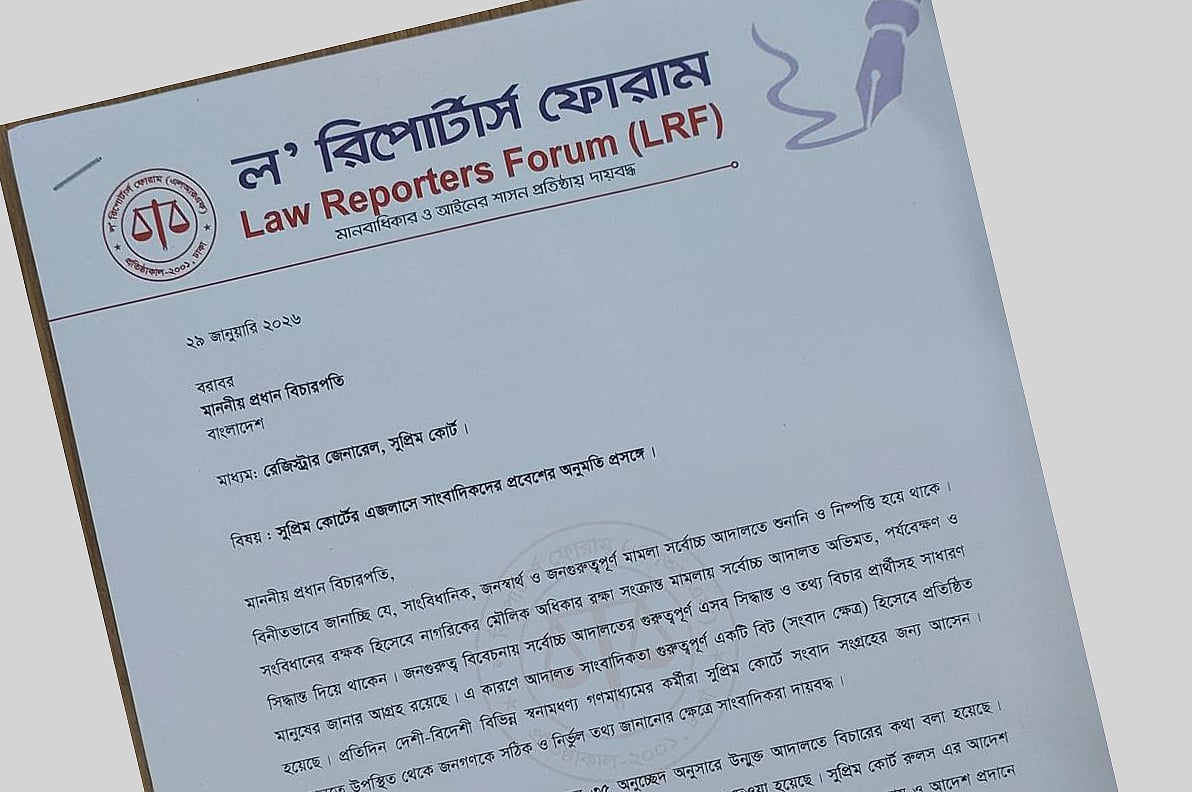 ল' রিপোর্টার্স ফোরাম
Law Reporters Forum (LRF)
মানবাধিকার ও আইনের শাসন প্রতিষ্ঠায় দায়বদ্ধ
ল' রিপোর্টার্স ফোরাম (এলআরএফ)
প্রতিষ্ঠাকাল-২০০১, ঢাকা
২৯ জানুয়ারি ২০২৬
বরাবর
মাননীয় প্রধান বিচারপতি
বাংলাদেশ
মাধ্যম: রেজিস্ট্রার জেনারেল, সুপ্রিম কোর্ট।
বিষয় : সুপ্রিম কোর্টের এজলাসে সাংবাদিকদের প্রবেশের অনুমতি প্রসঙ্গে।
মাননীয় প্রধান বিচারপতি,
বিনীতভাবে জানাচ্ছি যে, সাংবিধানিক, জনস্বার্থ ও জনগুরুত্বপূর্ণ মামলা সর্বোচ্চ আদালতে শুনানি ও নিষ্পত্তি হয়ে থাকে।
সংবিধানের রক্ষক হিসেবে নাগরিকের মৌলিক অধিকার রক্ষা সংক্রান্ত মামলায় সর্বোচ্চ আদালত অভিমত, পর্যবেক্ষণ ও
সিদ্ধান্ত দিয়ে থাকেন। জনগুরুত্ব বিবেচনায় সর্বোচ্চ আদালতের গুরুত্বপূর্ণ এসব সিদ্ধান্ত ও তথ্য বিচার প্রার্থীসহ সাধারণ
মানুষের জানার আগ্রহ রয়েছে। এ কারণে আদালত সাংবাদিকতা গুরুত্বপূর্ণ একটি বিট (সংবাদ ক্ষেত্র) হিসেবে প্রতিষ্ঠিত
হয়েছে। প্রতিদিন দেশী-বিদেশী বিভিন্ন স্বনামধন্য গণমাধ্যমের কর্মীরা সুপ্রিম কোর্টে সংবাদ সংগ্রহের জন্য আসেন।
উপস্থিত থেকে জনগণকে সঠিক ও নির্ভুল তথ্য জানানোর ক্ষেত্রে সাংবাদিকরা দায়বদ্ধ।
অনুচ্ছেদ অনুসারে উন্মুক্ত আদালতে বিচারের কথা বলা হয়েছে।
হয়েছে। সুপ্রিম কোর্ট রুলস এর আদেশ
ও আদেশ প্রদানে